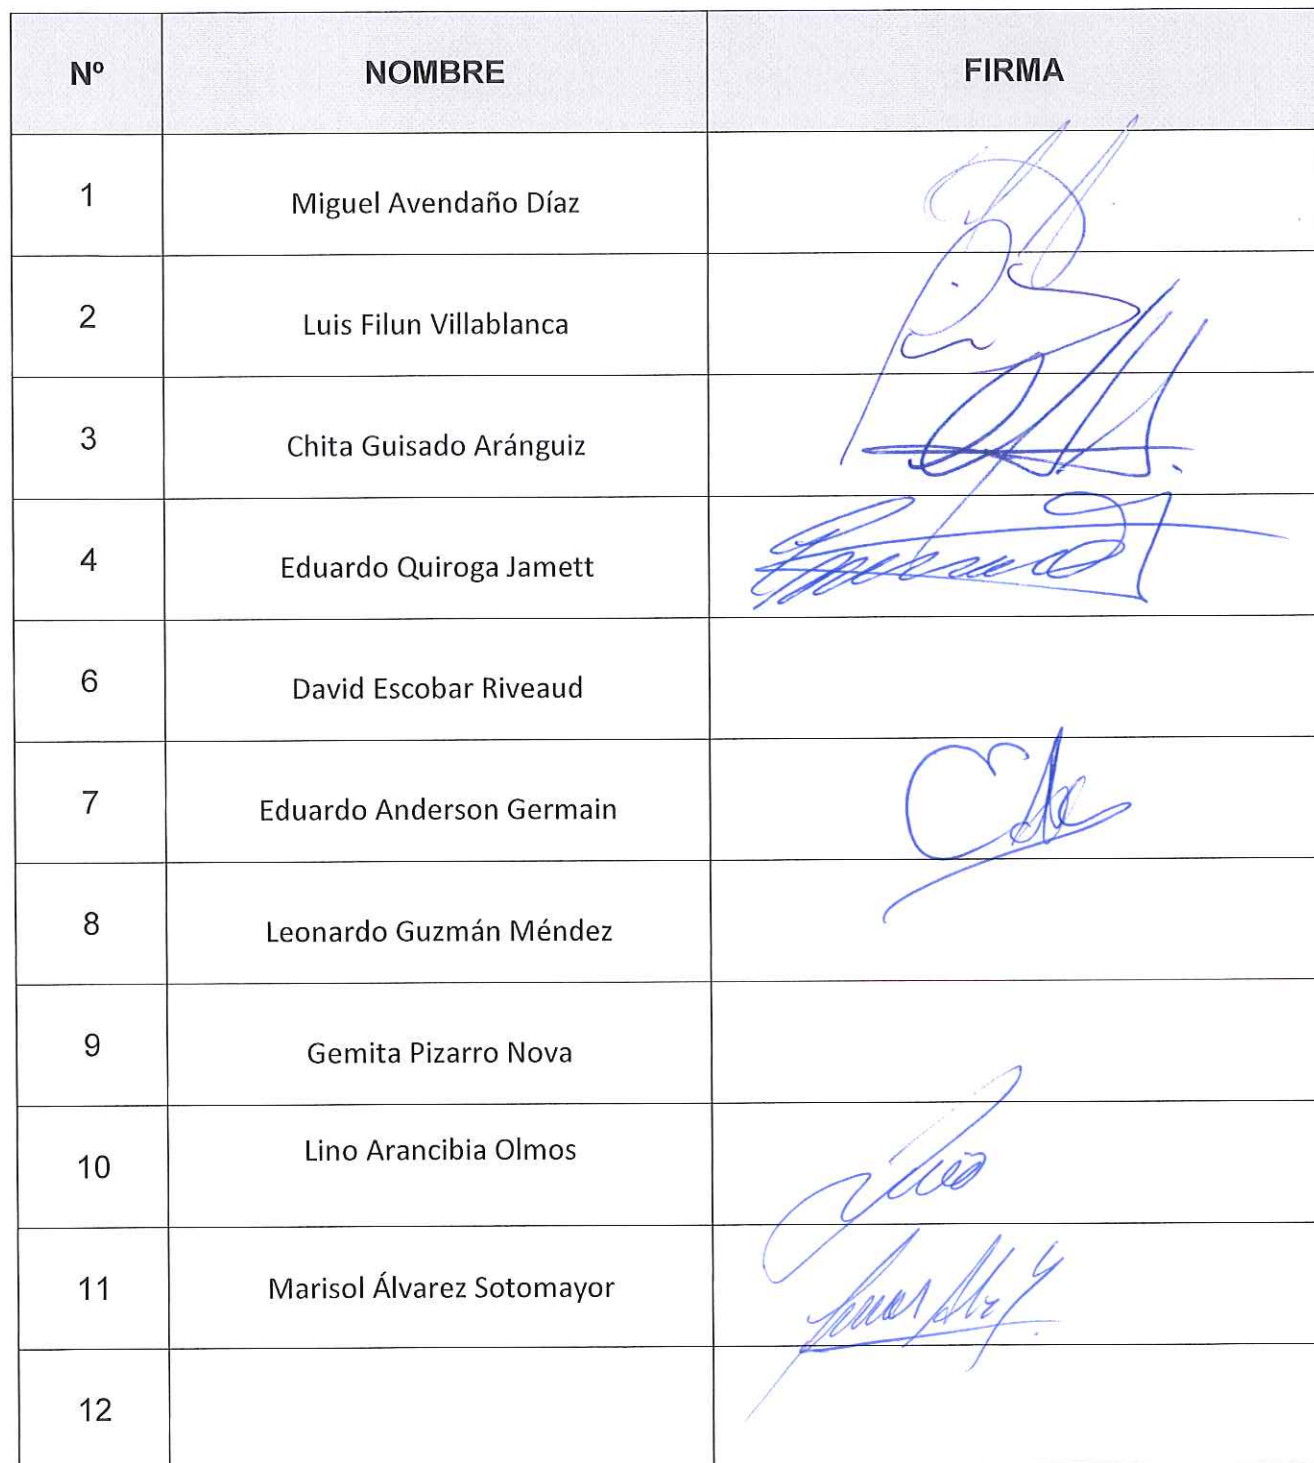 Nº NOMBRE FIRMA
1 Miguel Avendaño Díaz
2 Luis Filun Villablanca
3 Chita Guisado Aránguiz
4 Eduardo Quiroga Jamett
6 David Escobar Riveaud
7 Eduardo Anderson Germain
8 Leonardo Guzmán Méndez
9 Gemita Pizarro Nova
10 Lino Arancibia Olmos
11 Marisol Álvarez Sotomayor
12